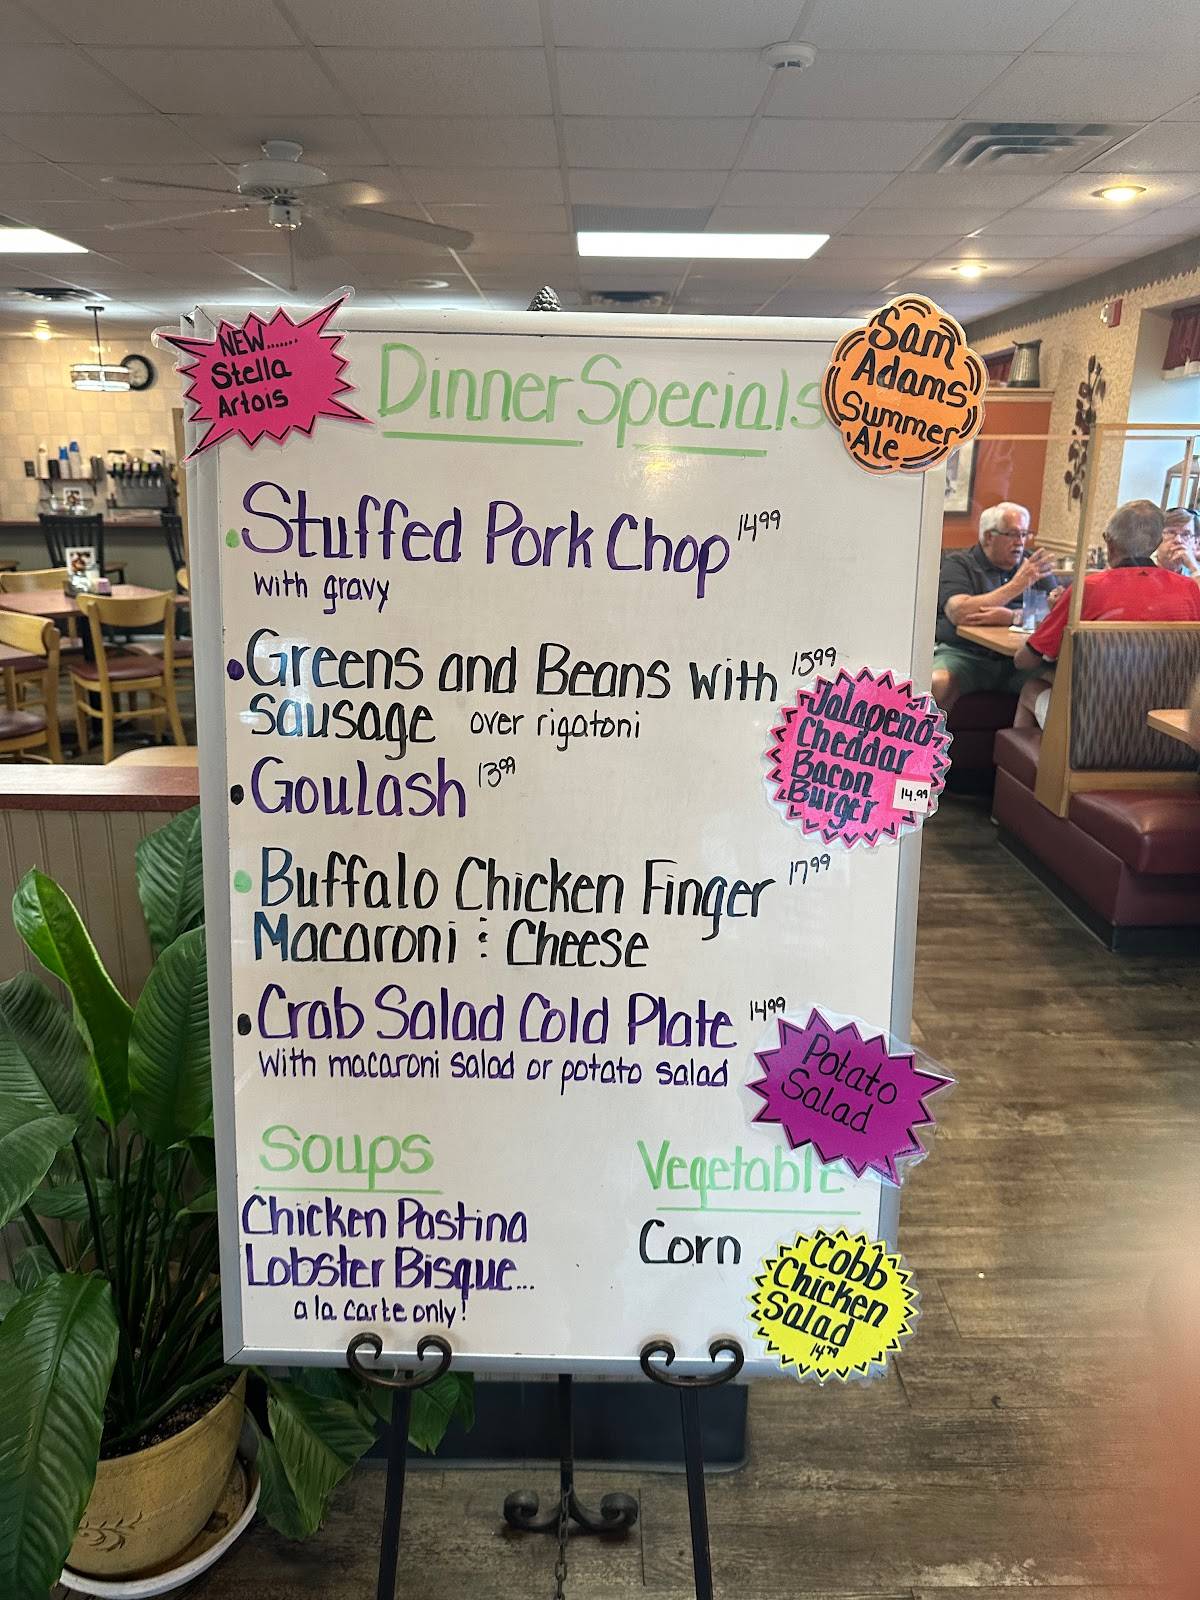 NEW.......
Stella
Artois
Dinner Specials
Sam
Adams
Summer
Ale
Stuffed Pork Chop 14.99
with gravy
Greens and Beans with 15.99
Sausage over rigatoni
Goulash 13.99
Jalapeño
Cheddar
Bacon
Burger 14.99
Buffalo Chicken Finger 17.99
Macaroni & Cheese
Crab Salad Cold Plate 14.99
with macaroni salad or potato salad
Potato
Salad
Soups
Chicken Pastina
Lobster Bisque...
a la carte only!
Vegetable
Corn
Cobb
Chicken
Salad
14.99